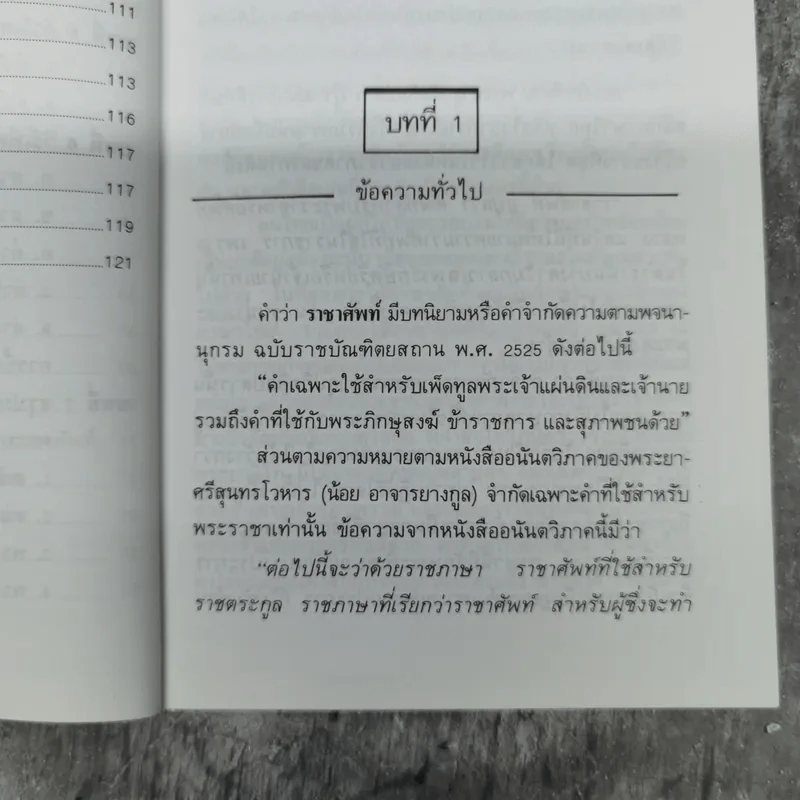 111
113
113
116
117
117
119
121
บทที่ 1
ข้อความทั่วไป
คำว่า ราชาศัพท์ มีบทนิยามหรือคำจำกัดความตามพจนา-
นุกรม ฉบับราชบัณฑิตยสถาน พ.ศ. 2525 ดังต่อไปนี้
“คำเฉพาะใช้สำหรับเพ็ดทูลพระเจ้าแผ่นดินและเจ้านาย
รวมถึงคำที่ใช้กับพระภิกษุสงฆ์ ข้าราชการ และสุภาพชนด้วย”
ส่วนตามความหมายตามหนังสืออนันตวิภาคของพระยา-
ศรีสุนทรโวหาร (น้อย อาจารยางกูล) จำกัดเฉพาะคำที่ใช้สำหรับ
พระราชาเท่านั้น ข้อความจากหนังสืออนันตวิภาคนี้มีว่า
“ต่อไปนี้จะว่าด้วยราชภาษา ราชาศัพท์ที่ใช้สำหรับ
ราชตระกูล ราชภาษาที่เรียกว่าราชาศัพท์ สำหรับผู้ซึ่งจะทำ